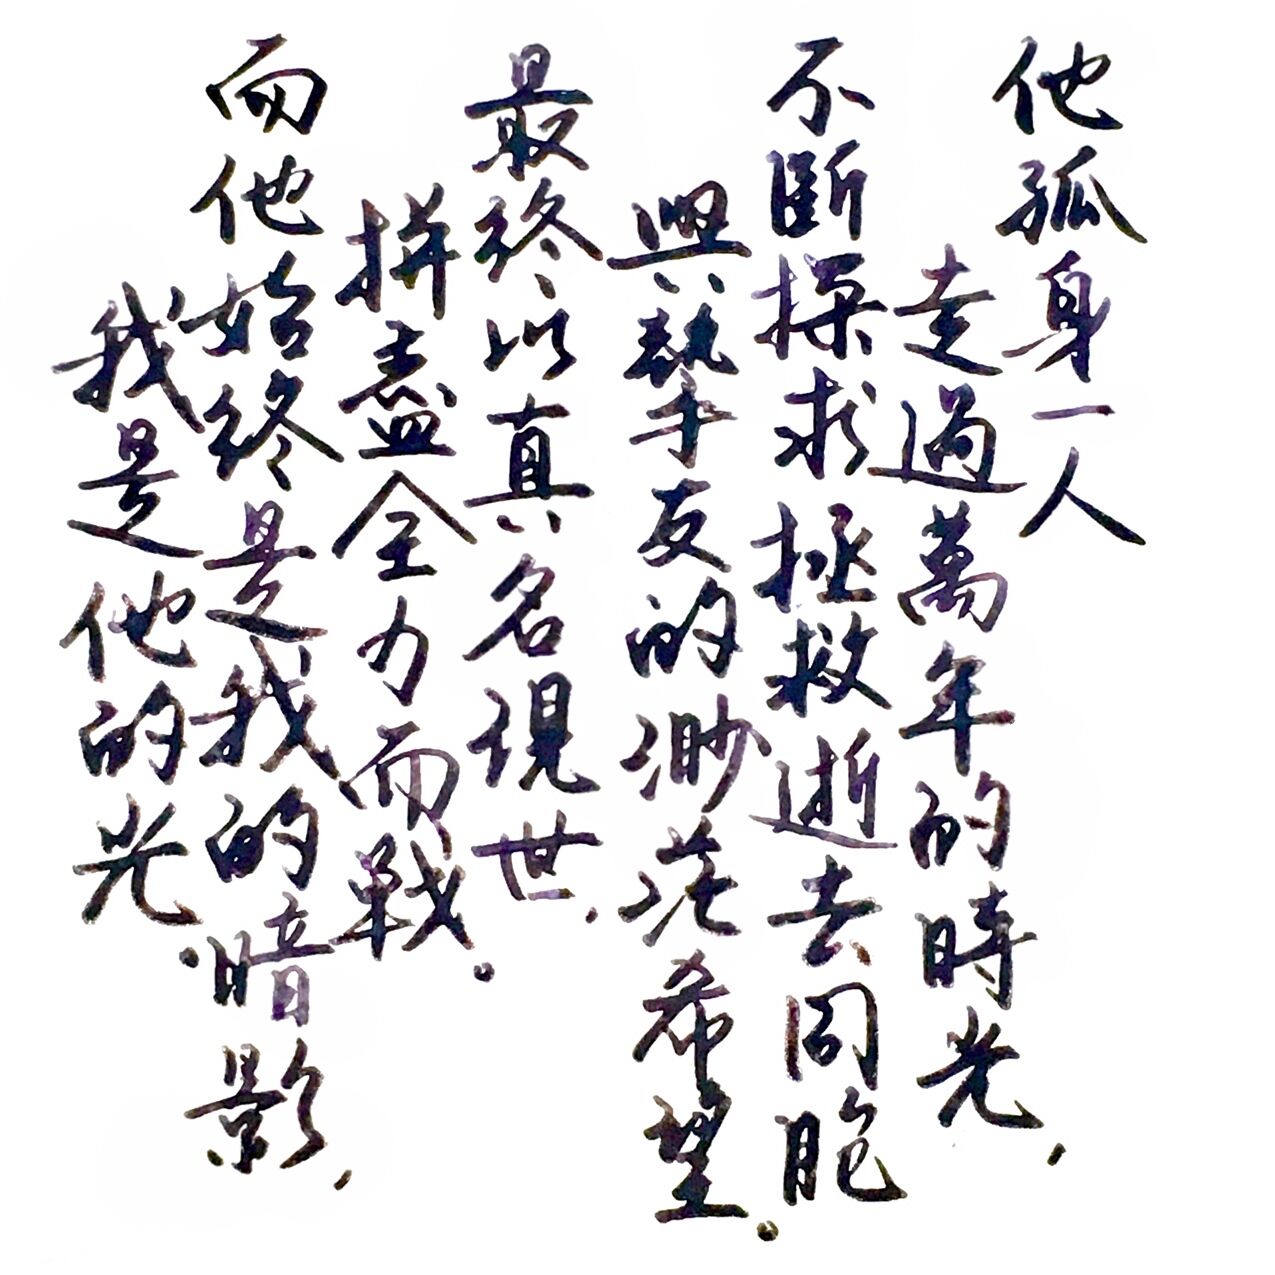 他孤身一人
走過萬年的時光，
不斷探求拯救逝去同胞
與摯友的渺茫希望。
最終以真名現世，
拼盡全力而戰。
而他始終是我的暗影，
我是他的光。